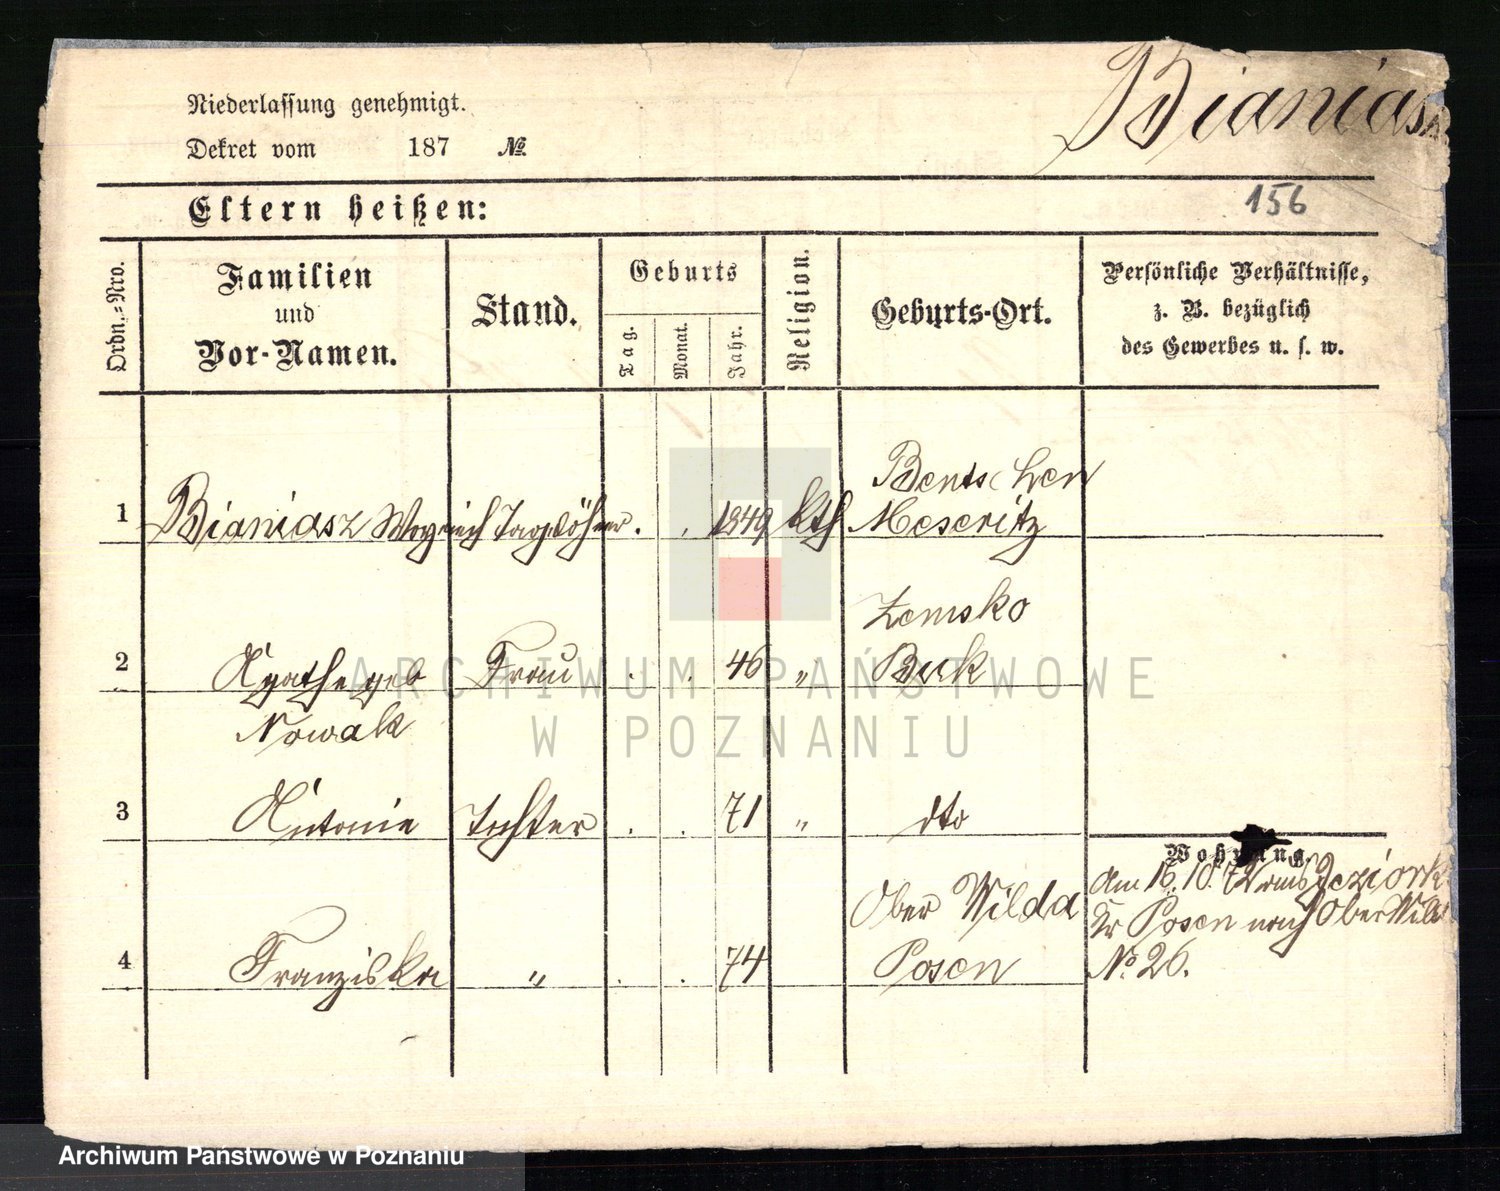 Niederlassung genehmigt.
Dekret vom 187 №
Bianiasz
Eltern heißen:
156
Ordn.-Nro.
Familien
und
Vor-Namen.
Stand.
Geburts
Tag.
Monat.
Jahr.
Religion.
Geburts-Ort.
Persönliche Verhältnisse,
z. B. bezüglich
des Gewerbes u. s. w.
Bentschen
1 Bianiasz Woyciech Tagelöhner . . 1849 kth Meseritz
Zemsko
2 Agathe geb Frau . . 46 „ Buk
Nowak
3 Antonie Tochter . . 71 „ dto
Wohnung.
Ober Wilda
Am 16. 10. 72 aus Jeziork
Kr Posen nach Ober Wilda
4 Franziska „ . . 74 Posen
No 26.
ARCHIWUM PAŃSTWOWE
W POZNANIU
Archiwum Państwowe w Poznaniu